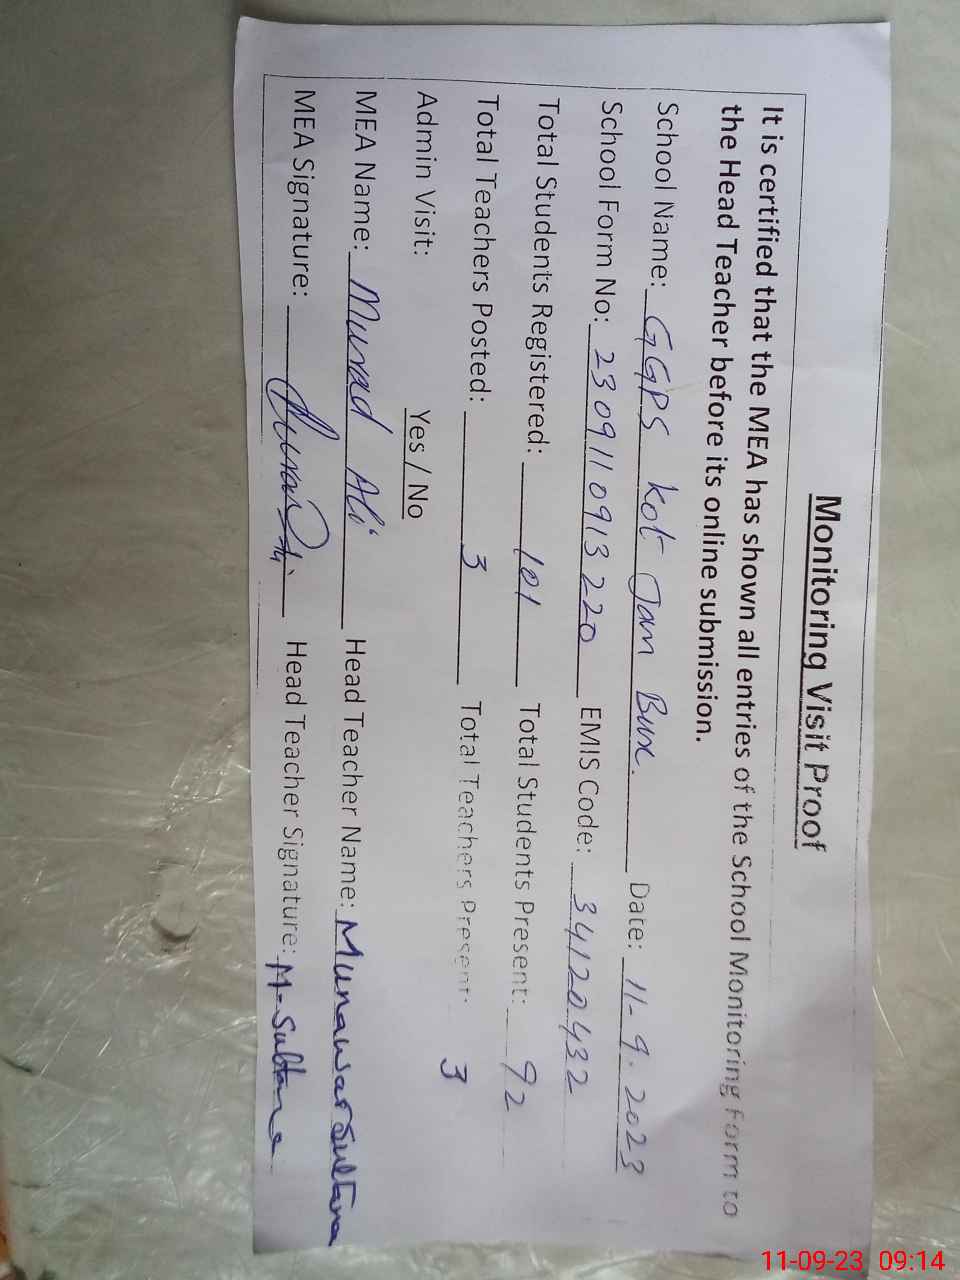 Monitoring Visit Proof
It is certified that the MEA has shown all entries of the School Monitoring Form to
the Head Teacher before its online submission.
School Name: GGPS Kot Jan Bux. Date: 11-9.2023
School Form No: 2309110913220 EMIS Code: 34120432
Total Students Registered: 101 Total Students Present: 92
Total Teachers Posted: 3 Total Teachers Present: 3
Admin Visit: Yes / No
MEA Name: Murad Ali Head Teacher Name: Munawar Sultana
MEA Signature: Murad Ali Head Teacher Signature: M-Sultana
11-09-23 09:14